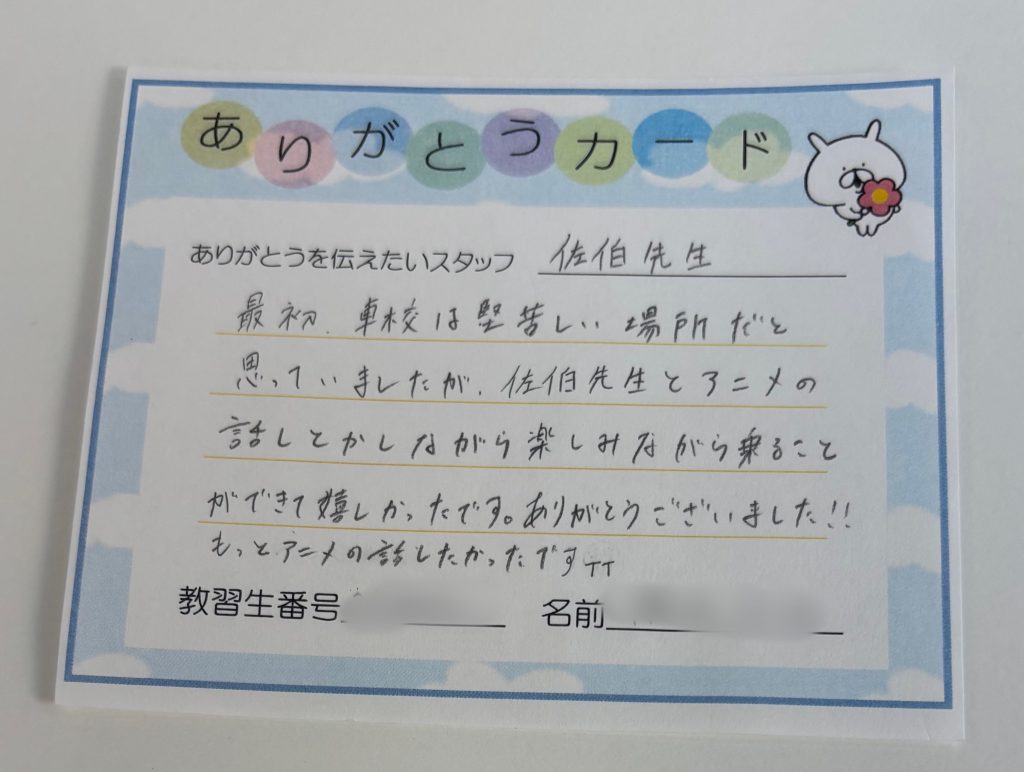 ありがとうカード
ありがとうを伝えたいスタッフ 佐伯先生
最初、車校は堅苦しい場所だと
思っていましたが、佐伯先生とアニメの
話しとかしながら楽しみながら乗ること
ができて嬉しかったです。ありがとうございました!!
もっとアニメの話したかったですTT
教習生番号
名前